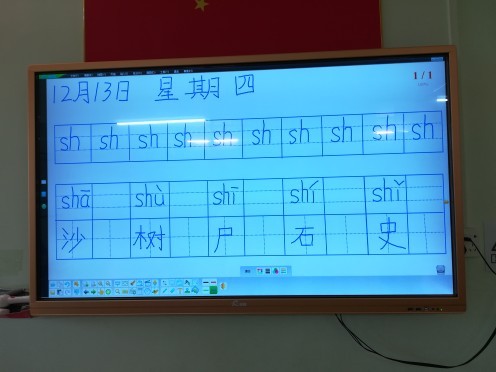 12月13日 星期四
1/1
sh sh sh sh sh sh sh sh sh sh
shā shù shī shí shǐ
沙 树 尸 石 史